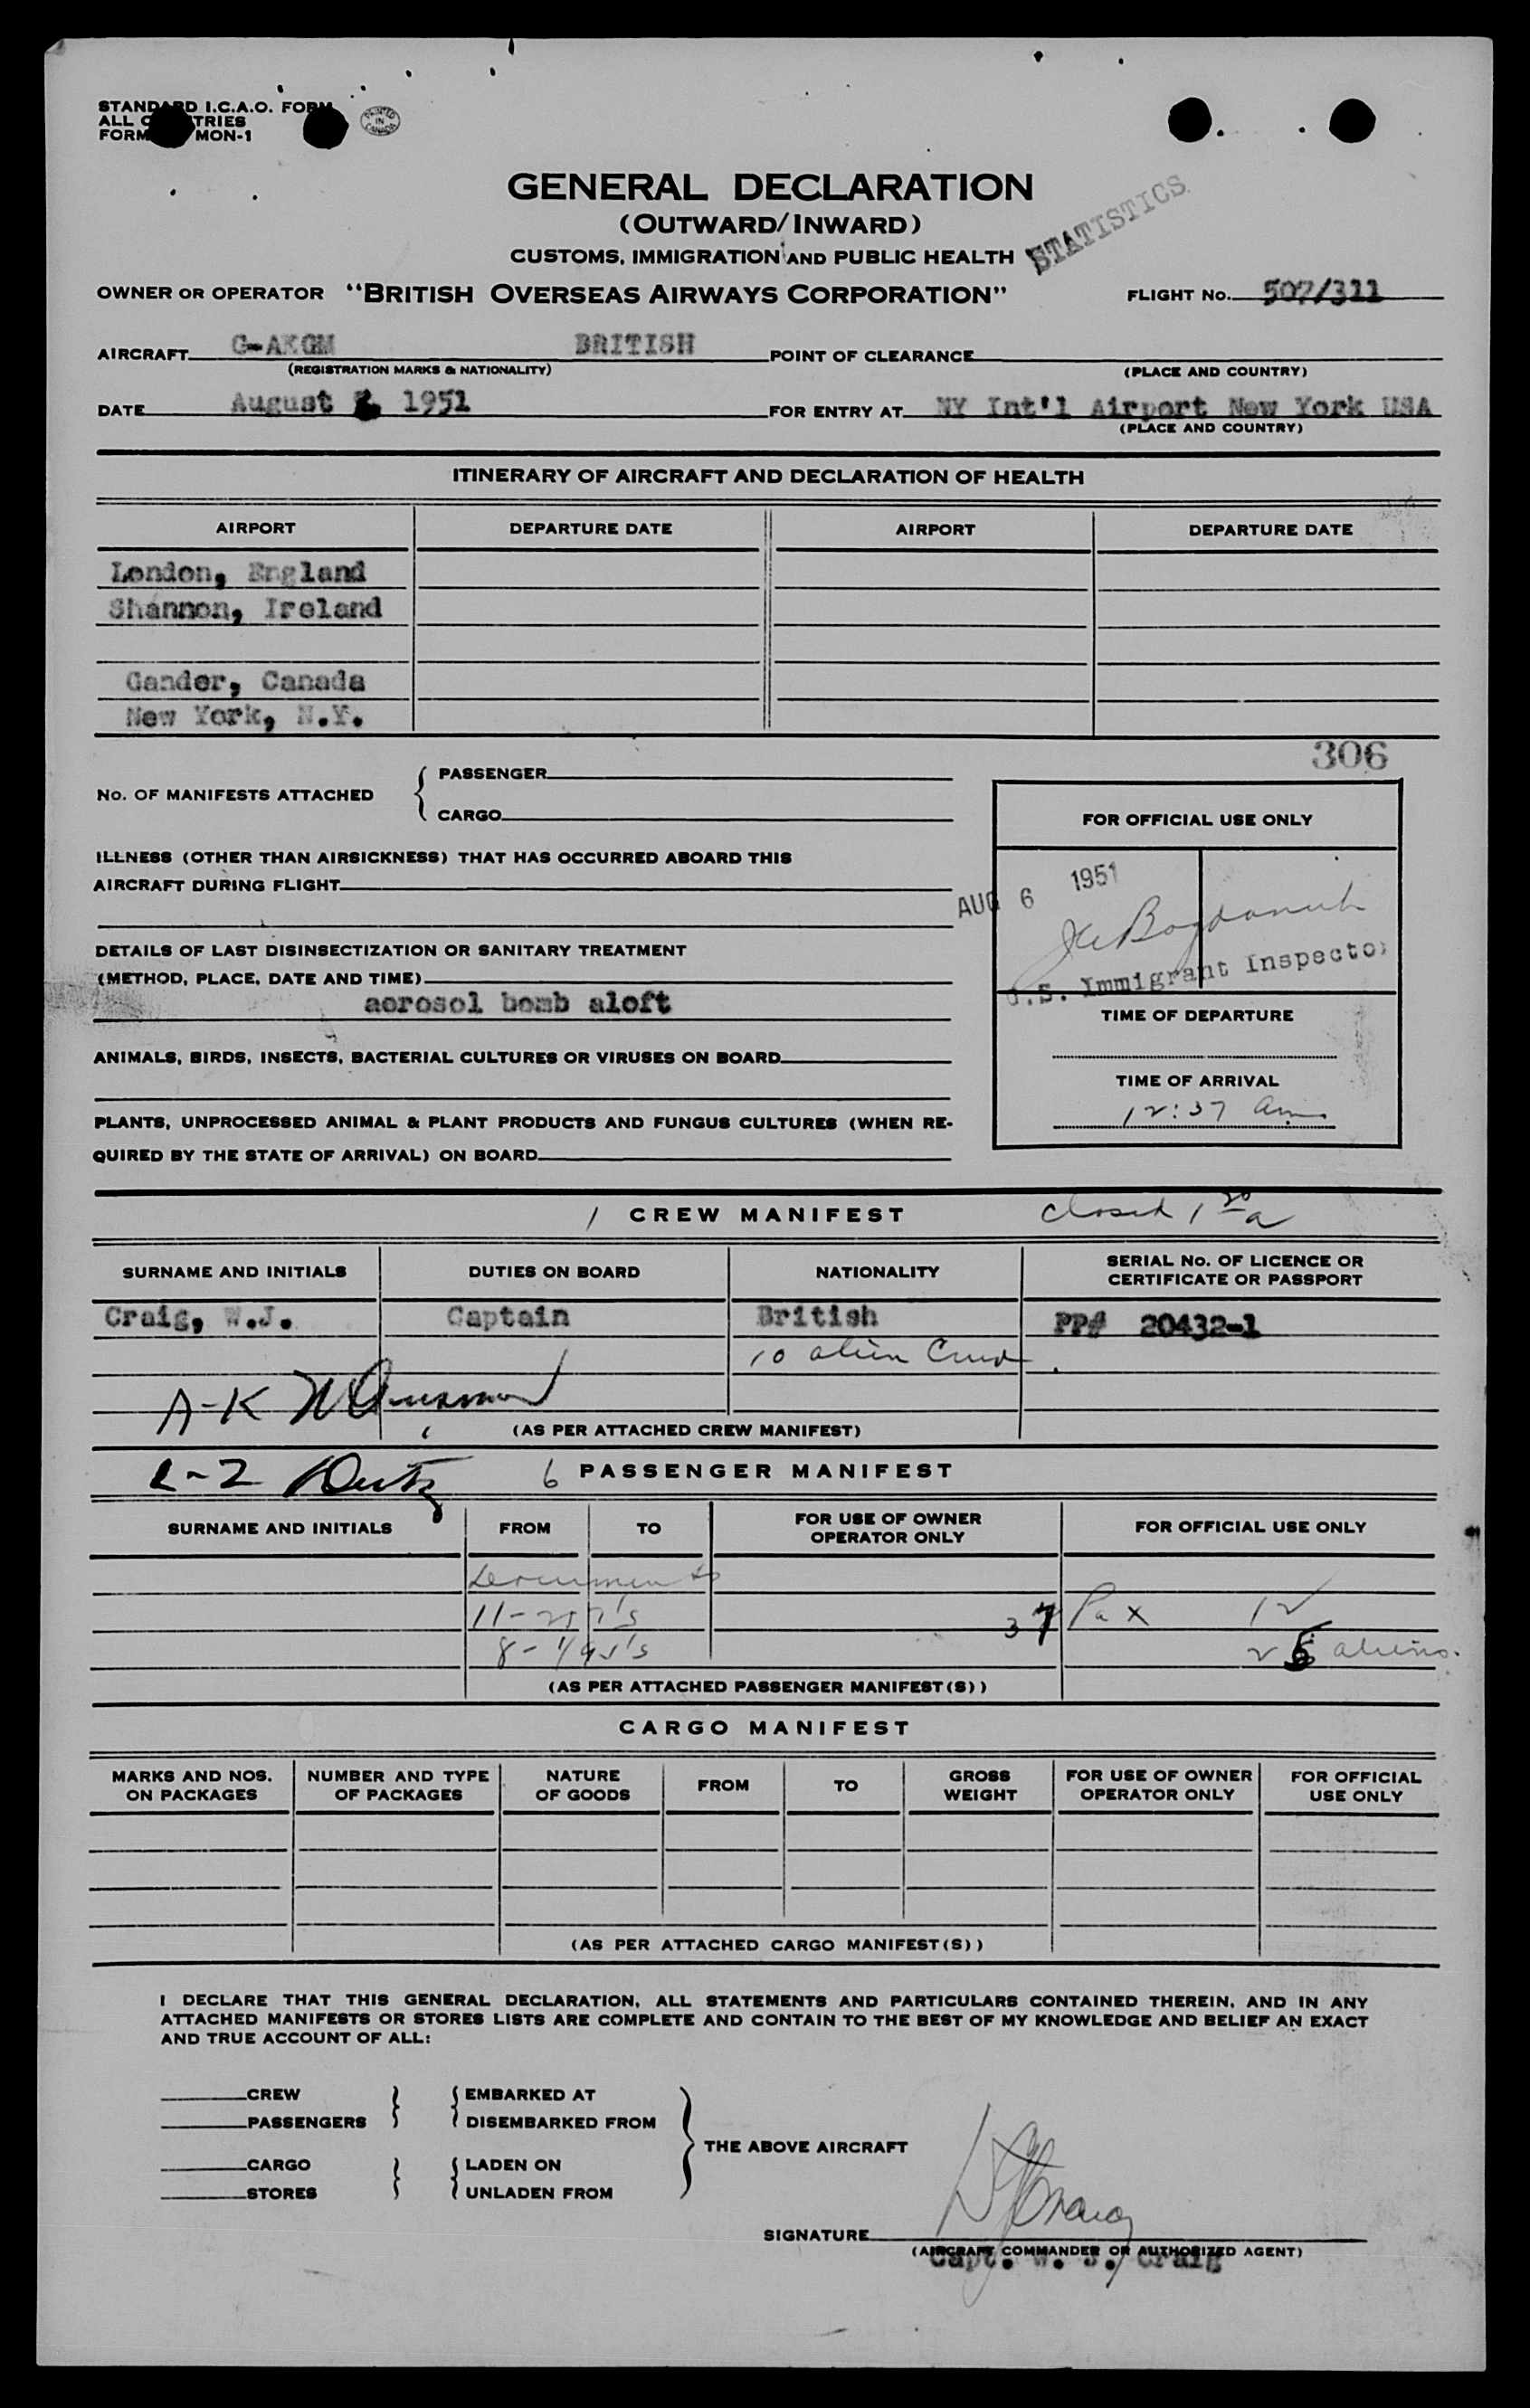 STANDARD I.C.A.O. FORM
ALL COUNTRIES
FORM MON-1
PRINTED IN CANADA
GENERAL DECLARATION
(OUTWARD/INWARD)
CUSTOMS, IMMIGRATION AND PUBLIC HEALTH
STATISTICS
OWNER OR OPERATOR "BRITISH OVERSEAS AIRWAYS CORPORATION" FLIGHT No. 507/311
AIRCRAFT G-AKGM BRITISH POINT OF CLEARANCE
(REGISTRATION MARKS & NATIONALITY) (PLACE AND COUNTRY)
DATE August 1951 FOR ENTRY AT NY Int'l Airport New York USA
(PLACE AND COUNTRY)
ITINERARY OF AIRCRAFT AND DECLARATION OF HEALTH
AIRPORT DEPARTURE DATE AIRPORT DEPARTURE DATE
London, England
Shannon, Ireland
Gander, Canada
New York, N.Y.
306
No. OF MANIFESTS ATTACHED { PASSENGER
CARGO
FOR OFFICIAL USE ONLY
ILLNESS (OTHER THAN AIRSICKNESS) THAT HAS OCCURRED ABOARD THIS
AIRCRAFT DURING FLIGHT
AUG 6 1951
DETAILS OF LAST DISINSECTIZATION OR SANITARY TREATMENT
(METHOD, PLACE, DATE AND TIME)
aerosol bomb aloft
U.S. Immigrant Inspector
TIME OF DEPARTURE
ANIMALS, BIRDS, INSECTS, BACTERIAL CULTURES OR VIRUSES ON BOARD
TIME OF ARRIVAL
12:37 am
PLANTS, UNPROCESSED ANIMAL & PLANT PRODUCTS AND FUNGUS CULTURES (WHEN RE-
QUIRED BY THE STATE OF ARRIVAL) ON BOARD
1 CREW MANIFEST closed 1 20 a
SURNAME AND INITIALS DUTIES ON BOARD NATIONALITY SERIAL No. OF LICENCE OR
CERTIFICATE OR PASSPORT
Craig, W.J. Captain British PP# 20432-1
10 alien Crew
A-K
(AS PER ATTACHED CREW MANIFEST)
L-Z
6 PASSENGER MANIFEST
SURNAME AND INITIALS FROM TO FOR USE OF OWNER
OPERATOR ONLY FOR OFFICIAL USE ONLY
Documents
11-257's 37 Pax 12
8- 25 aliens.
(AS PER ATTACHED PASSENGER MANIFEST(S))
CARGO MANIFEST
MARKS AND NOS.
ON PACKAGES NUMBER AND TYPE
OF PACKAGES NATURE
OF GOODS FROM TO GROSS
WEIGHT FOR USE OF OWNER
OPERATOR ONLY FOR OFFICIAL
USE ONLY
(AS PER ATTACHED CARGO MANIFEST(S))
I DECLARE THAT THIS GENERAL DECLARATION, ALL STATEMENTS AND PARTICULARS CONTAINED THEREIN, AND IN ANY
ATTACHED MANIFESTS OR STORES LISTS ARE COMPLETE AND CONTAIN TO THE BEST OF MY KNOWLEDGE AND BELIEF AN EXACT
AND TRUE ACCOUNT OF ALL:
CREW } { EMBARKED AT
PASSENGERS DISEMBARKED FROM
} THE ABOVE AIRCRAFT
CARGO } { LADEN ON
STORES UNLADEN FROM
SIGNATURE WJCraig
(AIRCRAFT COMMANDER OR AUTHORIZED AGENT)
Capt. W. J. Craig